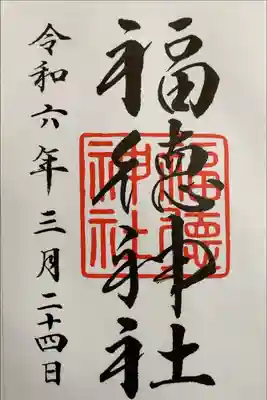 福徳神社
福徳
神社
令和六年三月二十四日